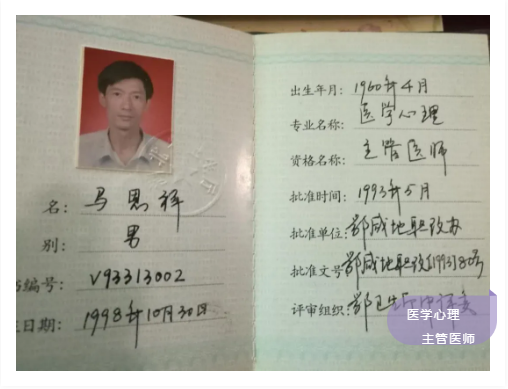 名: 马恩祥
别: 男
编号: V93313002
日期: 1998年10月30日
出生年月: 1960年4月
专业名称: 医学心理
资格名称: 主管医师
批准时间: 1993年5月
批准单位: 鄂咸地职改办
批准文号 鄂咸地职改(1993)80号
评审组织: 鄂卫生厅中评委
医学心理
主管医师